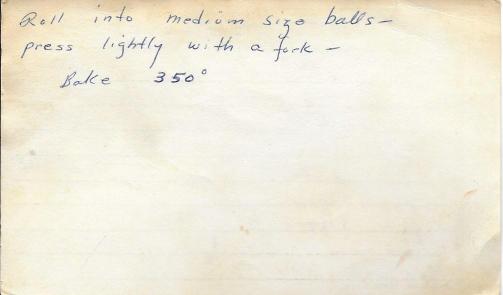 Roll into medium size balls-
press lightly with a fork -
Bake 350°